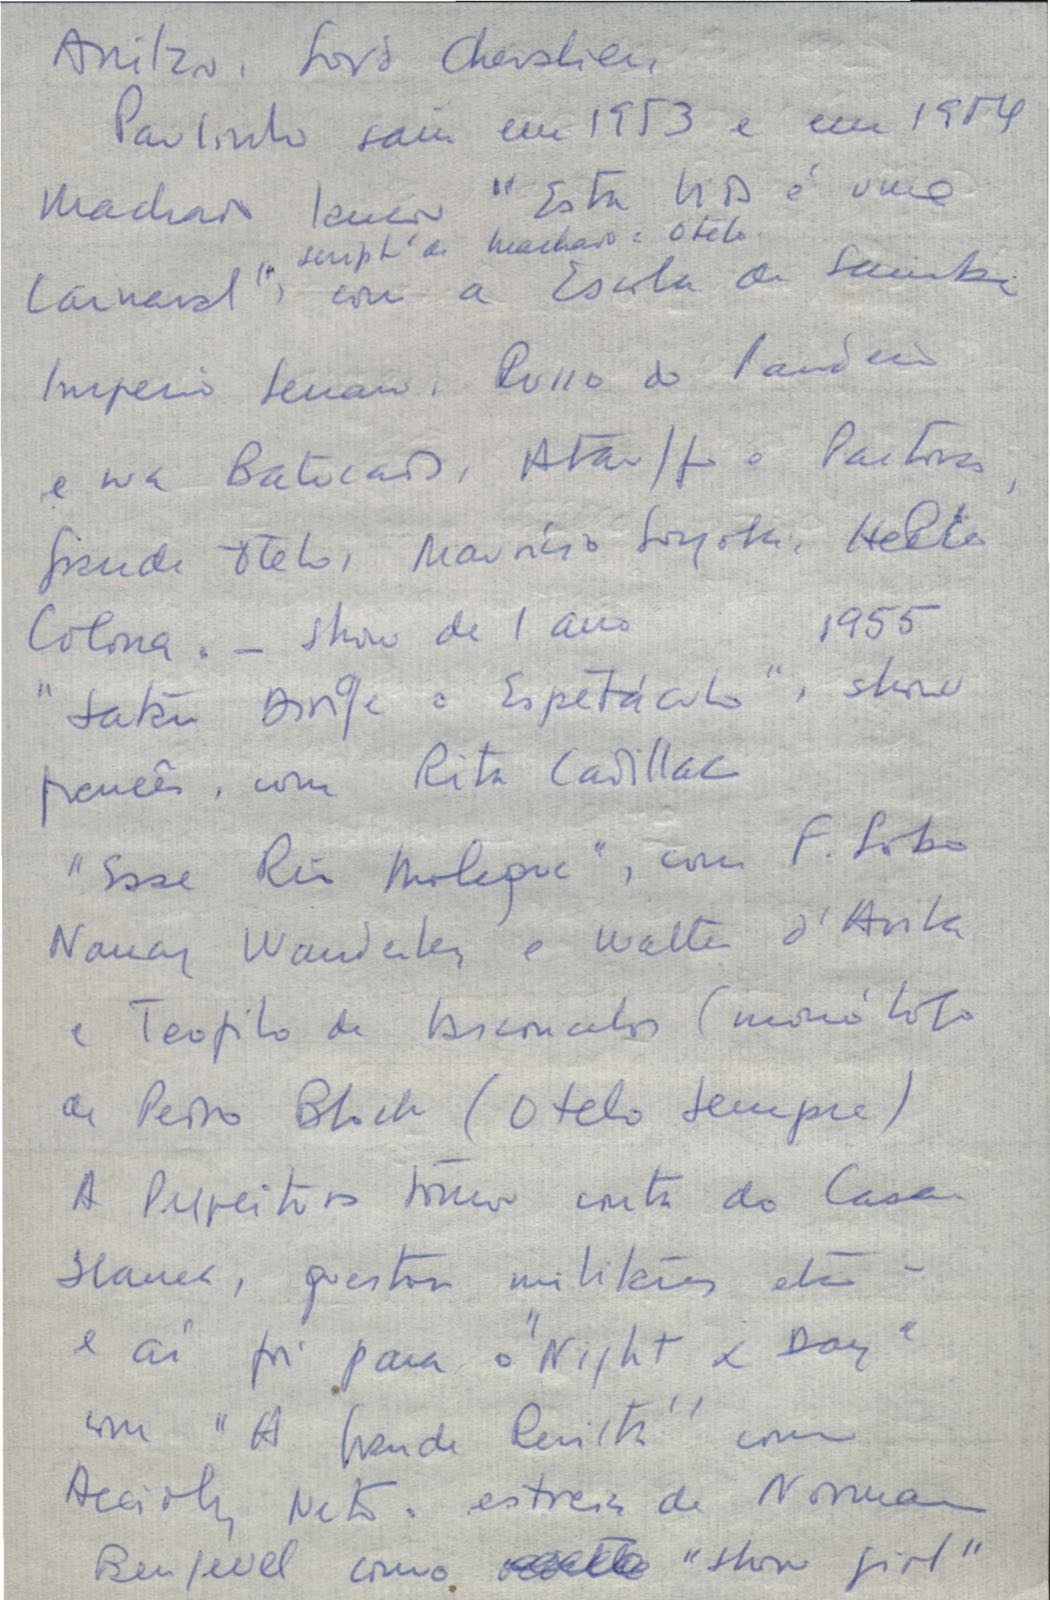 Anitzo, Lord Chevalier,
Paulinho saiu em 1953 e em 1954
Machado lançou "Esta vida é um
script de Machado e Otelo
Carnaval", com a Escola de Samba
Imperio Serrano, Russo do Pandeiro
e sua Batucada, Ataulfo e Pastoras,
Grande Otelo, Mauricio Loyola,
Colona. – show de 1 ano 1955
"Satã Dirige o Espetáculo", show
francês, com Rita Cadillac
"Esse Rio Moleque", com F. Lobo
Nancy Wanderley e Walter d'Avila
e Teofilo de Vasconcelos (monólogo
de Pedro Bloch (Otelo sempre)
A Prefeitura tomou conta do Casa
blanca, questões militares etc –
e aí foi para o "Night & Day"
com "A Grande Revista" com
Accioly Neto. estreia de Norma
Benguel como "show girl"